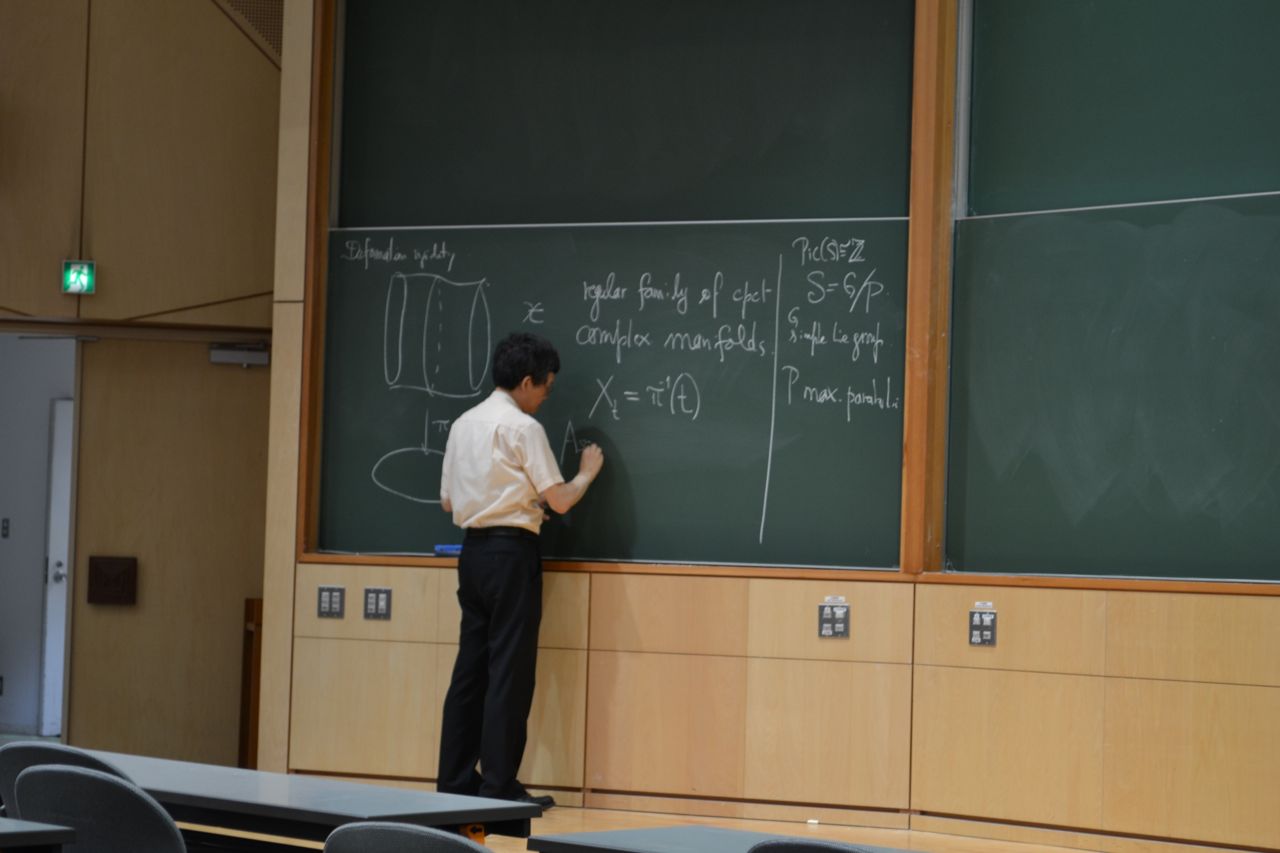 Deformation rigidity
π
regular family of cpct
complex manifolds.
X_t = π⁻¹(t)
Pic(S)≅ℤ
S=G/P.
G
simple Lie group.
P max. parabolic